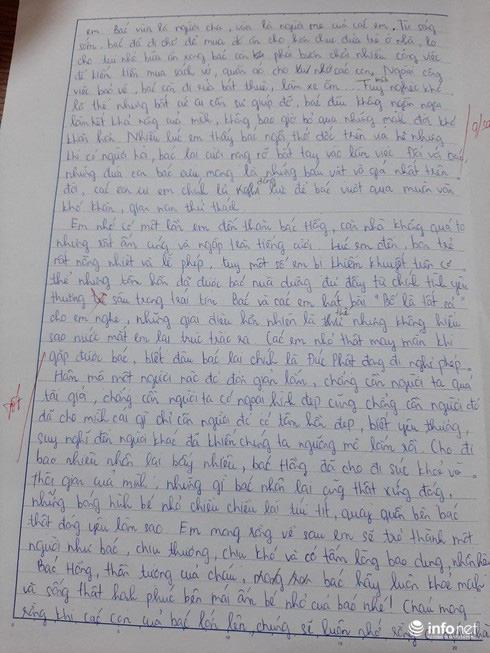 em. Bác vừa là người cha, vừa là người mẹ của các em. Từ sáng
sớm, bác đã đi chợ để mua đồ ăn cho hơn chục đứa trẻ ở nhà, lo
cho tụi nhỏ bữa ăn xong bác còn phải bươn chải nhiều công việc
để kiếm tiền mua sách vở, quần áo cho các con. Ngoài công
việc bảo vệ, bác còn đi rửa bát thuê, làm xe ôm. Tuy nghèo khổ
là thế nhưng bất cứ ai cần sự giúp đỡ, bác đều không ngần ngại
làm hết khả năng của mình, không bao giờ bỏ qua những mảnh đời khó
khăn hơn. Nhiều lúc em thấy bác ngồi thở dốc trên vỉa hè nhưng
khi có người hỏi, bác lại cười rạng rỡ bắt tay vào làm việc. Đối với bác,
những đứa con bác cưu mang là những báu vật vô giá nhất trên
đời, các em ấy em chính là động lực để bác vượt qua muôn vàn
khó khăn, gian nan thử thách.
Em nhớ có một lần em đến thăm bác Hồng, căn nhà không quá to
nhưng rất ấm cúng và ngập tràn tiếng cười. Lúc em đến, bọn trẻ
rất năng nhiệt và lễ phép, tuy một số em bị khiếm khuyết trên cơ
thể nhưng tâm hồn đã được bác nuôi dưỡng đủ đầy từ chính tình yêu
thương sâu trong trái tim. Bác và các em hát bài "Bố là tất cả"
cho em nghe, những giai điệu hồn nhiên là thế nhưng không hiểu
sao nước mắt em lại trực trào ra. Các em nhỏ thật may mắn khi
gặp được bác, biết đâu bác lại chính là Đức Phật đang đi nghĩ phép.
Hâm mộ một người nào đó đơn giản lắm, chẳng cần người ta quá
tài giỏi, chẳng cần người ta có ngoại hình đẹp cũng chẳng cần người đó
đã cho mình cái gì chỉ cần người đó có tâm hồn đẹp, biết yêu thương,
suy nghĩ đến người khác đã khiến chúng ta ngưỡng mộ lắm rồi. Cho đi
bao nhiêu nhận lại bấy nhiêu, bác Hồng đã cho đi sức khoẻ và
thời gian của mình nhưng gì bác nhận lại cũng thật xứng đáng,
những bóng hình bé nhỏ chiều chiều lại túi tít, quây quần bên bác
thật đáng yêu làm sao. Em mong rằng về sau em sẽ trở thành một
người như bác, chịu thương, chịu khó và có tấm lòng bao dung, nhân hậu.
Bác Hồng, thần tượng của cháu, mong bác hãy luôn khoẻ mạnh
và sống thật hạnh phúc bên mái ấm bé nhỏ của bác nhé! Cháu mong
rằng khi các con của bác lớn lên, chúng sẽ luôn nhớ rằng
infonet